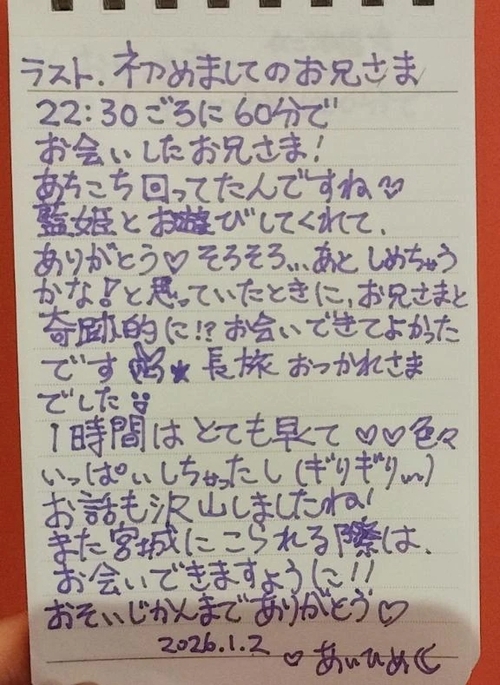 ラスト、初めましてのお兄さま
22:30ごろに60分で
お会いしたお兄さま!
あちこち回ってたんですね♡
藍姫とお遊びしてくれて、
ありがとう♡そろそろ...あと しめちゃう
かな!と思っていたときに、お兄さまと
奇跡的に!?お会いできてよかった
です✌★ 長旅 おつかれさま
でした
1時間は とても早くて ♡♡色々
いっぱいしちゃったし(ぎりぎり〜)
お話も沢山しましたね!
また宮城にこられる際は、
お会いできますように!!
おそいじかんまで ありがとう♡
2026.1.2 ♡あいひめ☾